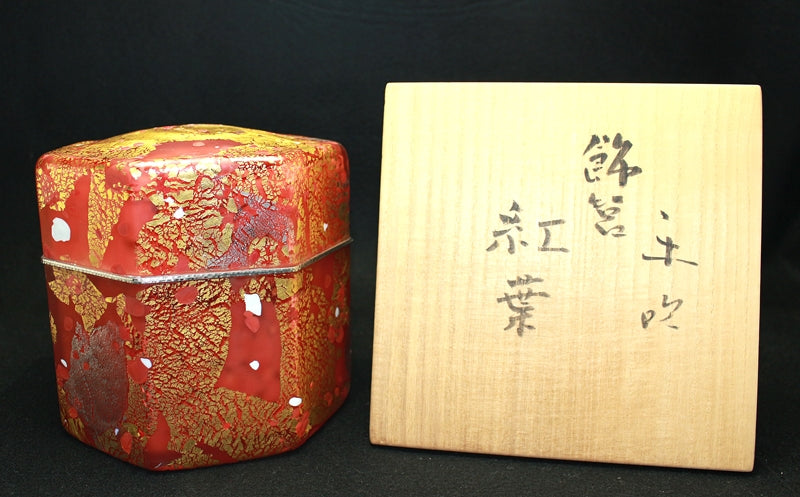 手吹
飾筥
紅葉